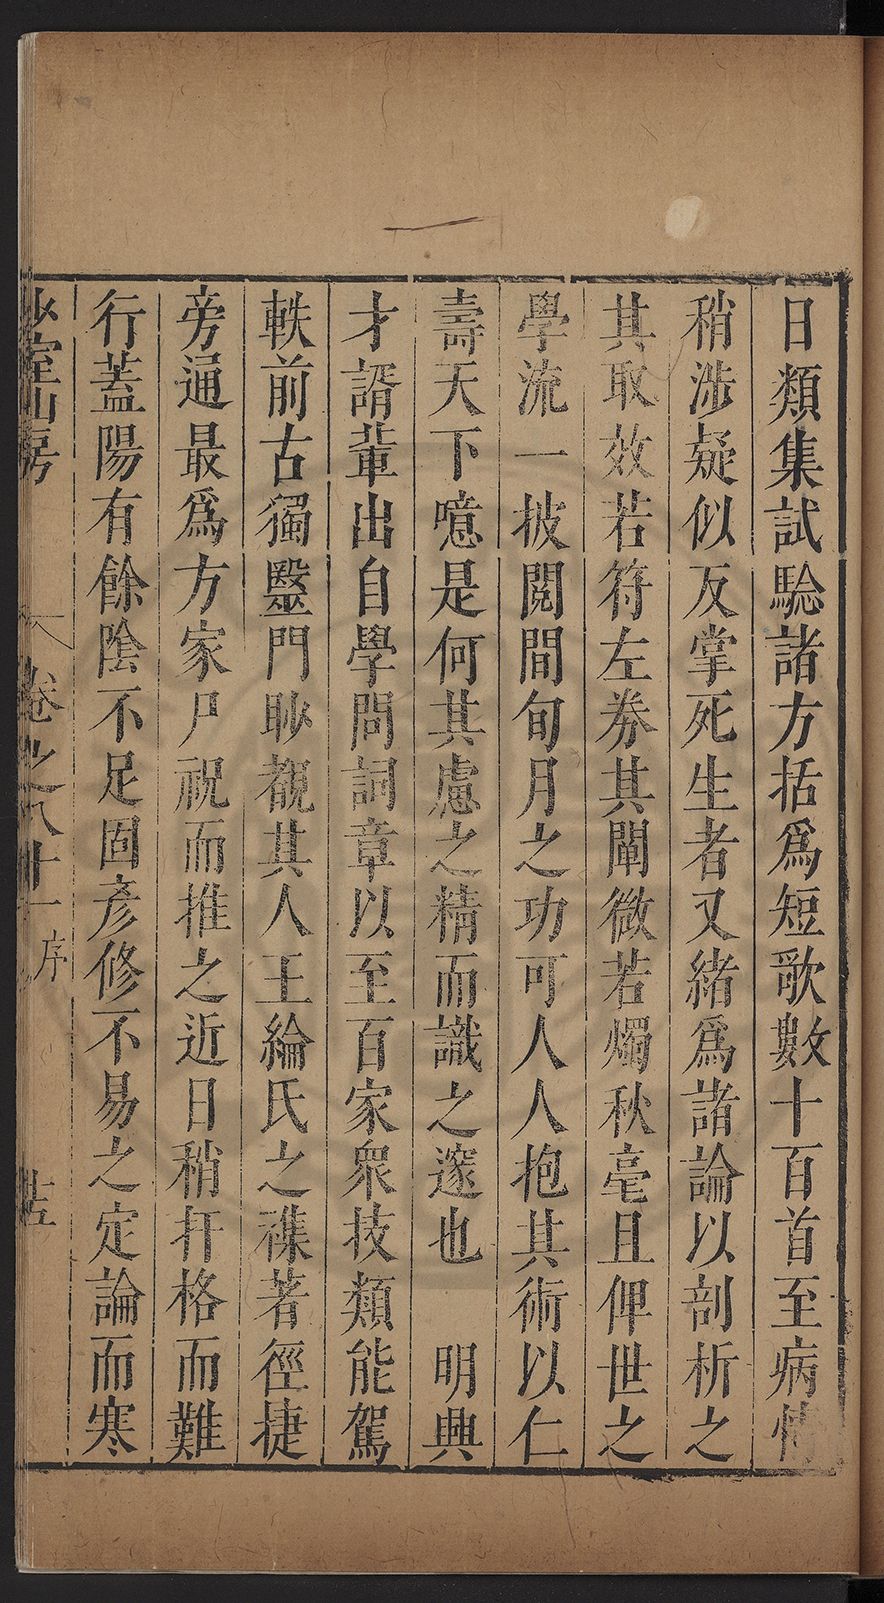 日類集試驗諸方括爲短歌數十百首至病情
稍涉疑似反掌死生者又緒爲諸論以剖析之
其取效若符左券其闡微若燭秋毫且俾世之
學流一披閱間旬月之功可人人抱其術以仁
壽天下噫是何其慮之精而識之邃也　明興
才諝輩出自學問詞章以至百家衆技類能駕
軼前古獨毉門眇覩其人王綸氏之襍著徑捷
旁通最爲方家尸祝而推之近日稍扞格而難
行蓋陽有餘陰不足固彥修不易之定論而寒
少室山房　卷之八十一　序